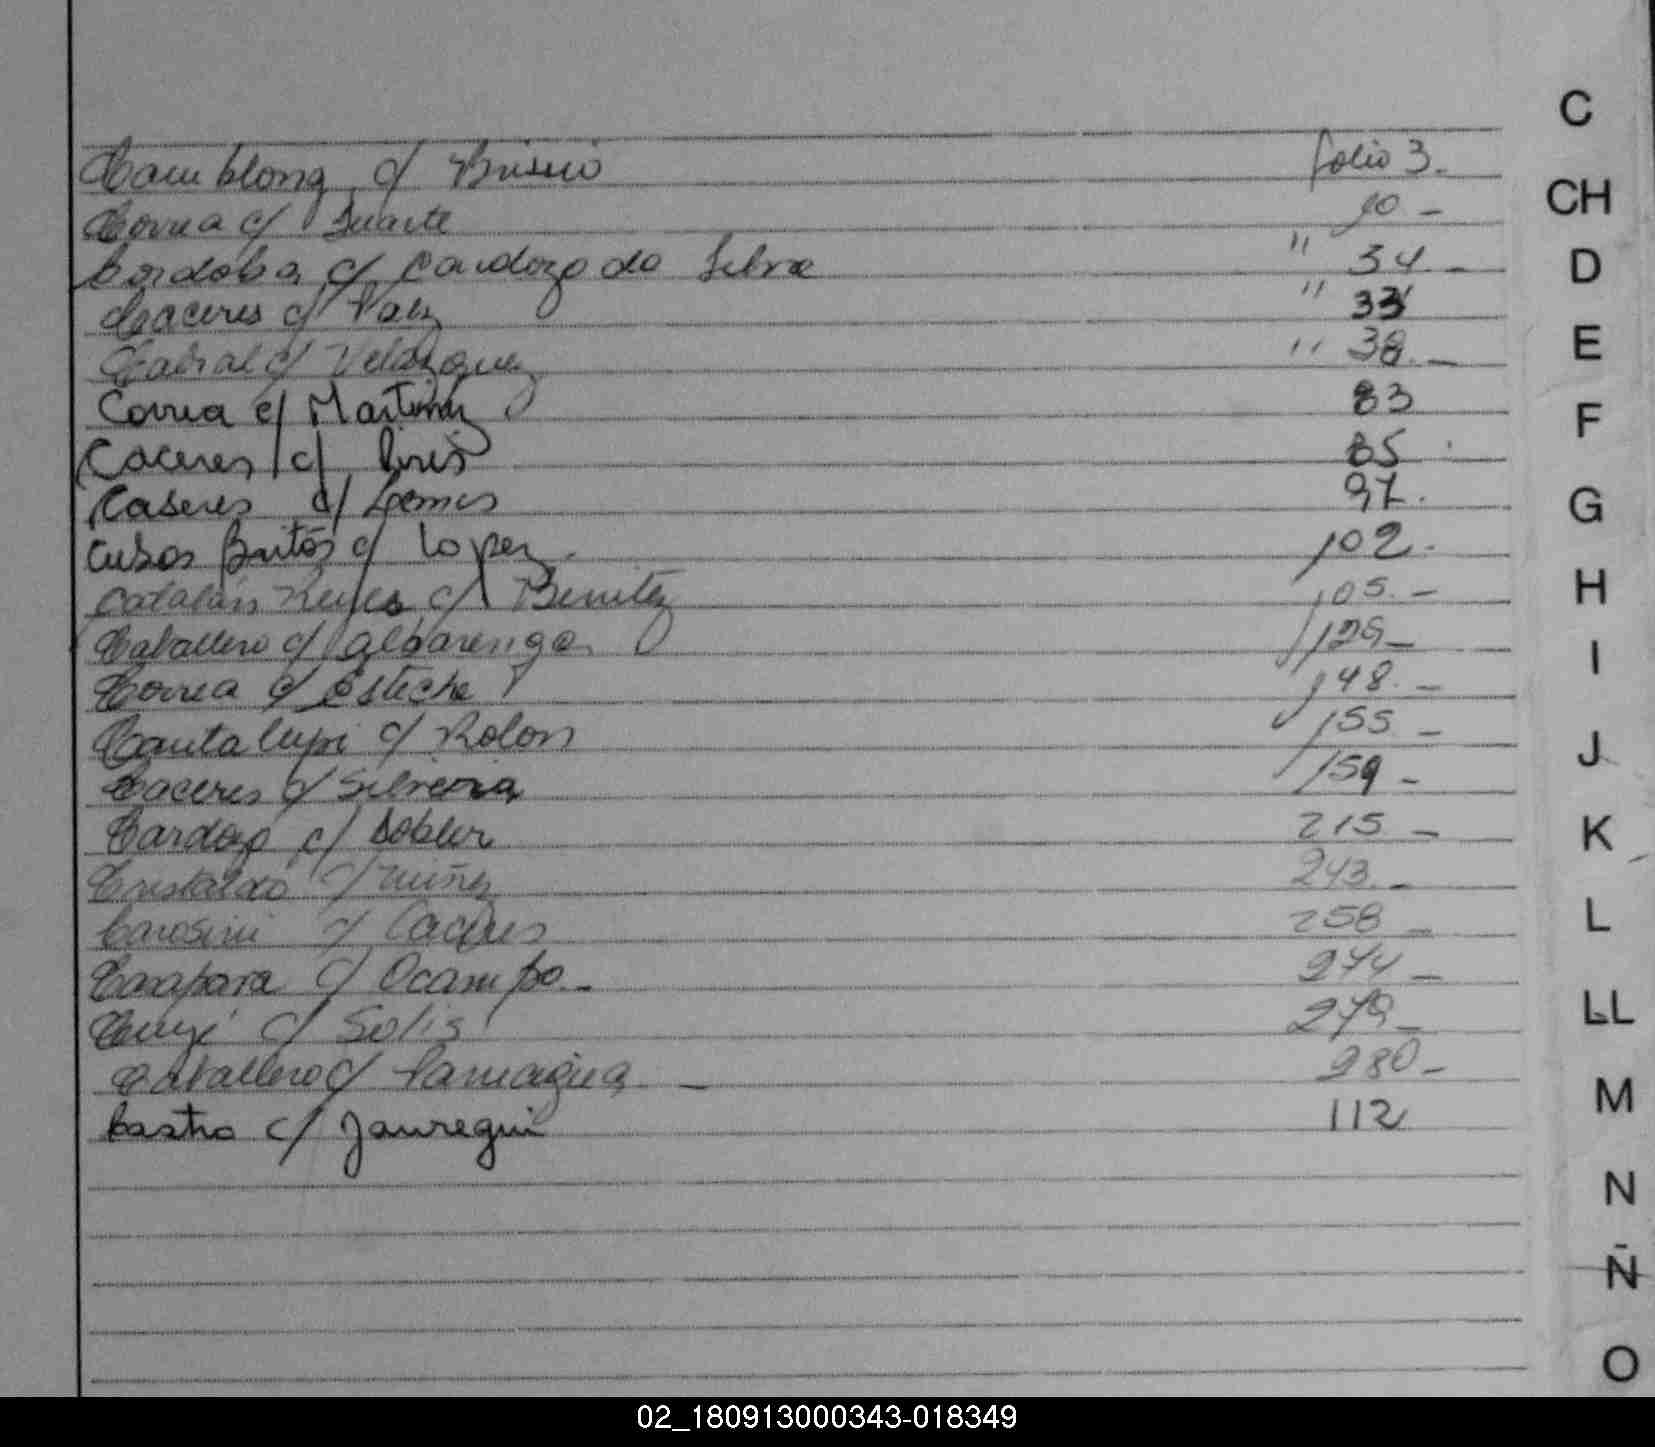 C
Camblong c/ Briseño folio 3.
CH
Correa c/ Duarte 10 -
Cordoba c/ Cardozo da Silva " 34 -
D
Caceres c/ Paez " 33
Cabral c/ Velazquez " 38. -
E
Correa c/ Martinez 83
F
Caceres c/ Pires 85
Caseres c/ Lemes 97.
G
Cubas c/ Lopez. 102.
Catalan Reyes c/ Benitez 105. -
H
Caballero c/ Albarenga 129 -
I
Correa c/ Esteche 148. -
Cantalupi c/ Rolon 155 -
J
Caceres c/ Silveira 159 -
Cardozo c/ Dobler 215 -
K
Cristaldo c/ Nuñez 243. -
L
Carosini c/ Caceres 258 -
Carapara c/ Ocampo. - 274 -
LL
c/ Solis 279 -
Caballero c/ Paniagua - 280 -
M
Castro c/ Jauregui 112
N
Ñ
O
02_180913000343-018349